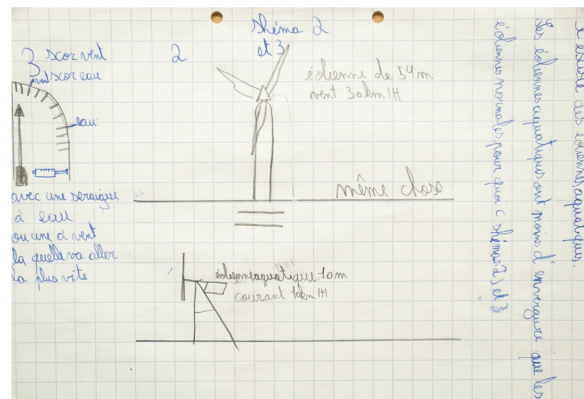 shéma 2
et 3
3 scor vent
scor eau
vent
eau
avec une seraigue
à eau
ou une à vent
la quelle va aller
la plus vite
2
éolienne de 54m
vent 30km/H
même chose
éolienne aquatique 10m
courant 10km/H
existe des éoliennes aquatiques.
Les éoliennes aquatiques ont moins d'envergure que les
éoliennes normales pour quoi c shéma 2) et 3